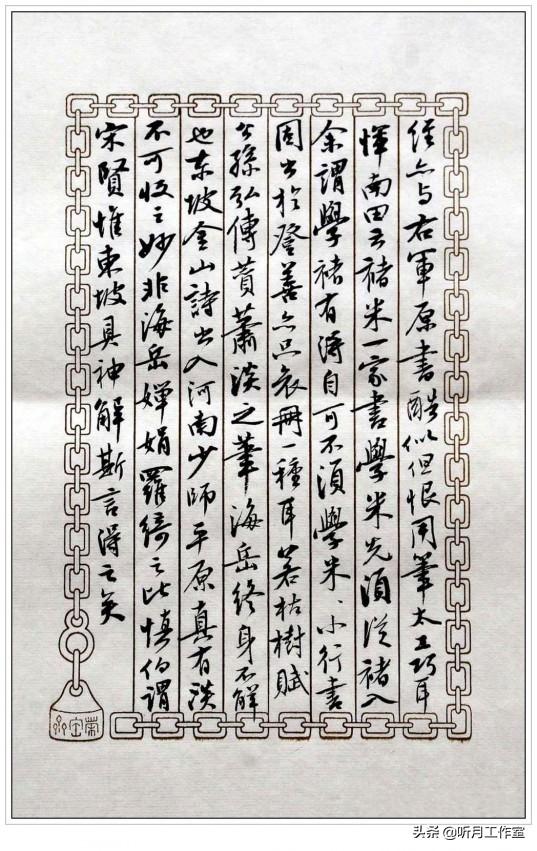 經亦与右軍原書酷似但恨用筆太工巧耳
惲南田云褚米一家書學米先須從褚入
余謂學褚有得自可不須學米、小行書
固出於登善亦只哀冊一種耳若枯樹賦
公孫弘傳贊蕭淡之筆海岳終身不解
也東坡金山詩出入河南少師平原真有淡
不可收之妙非海岳嬋娟羅綺之比慎伯謂
宋賢惟東坡具神解斯言得之矣
头条 @听月工作室